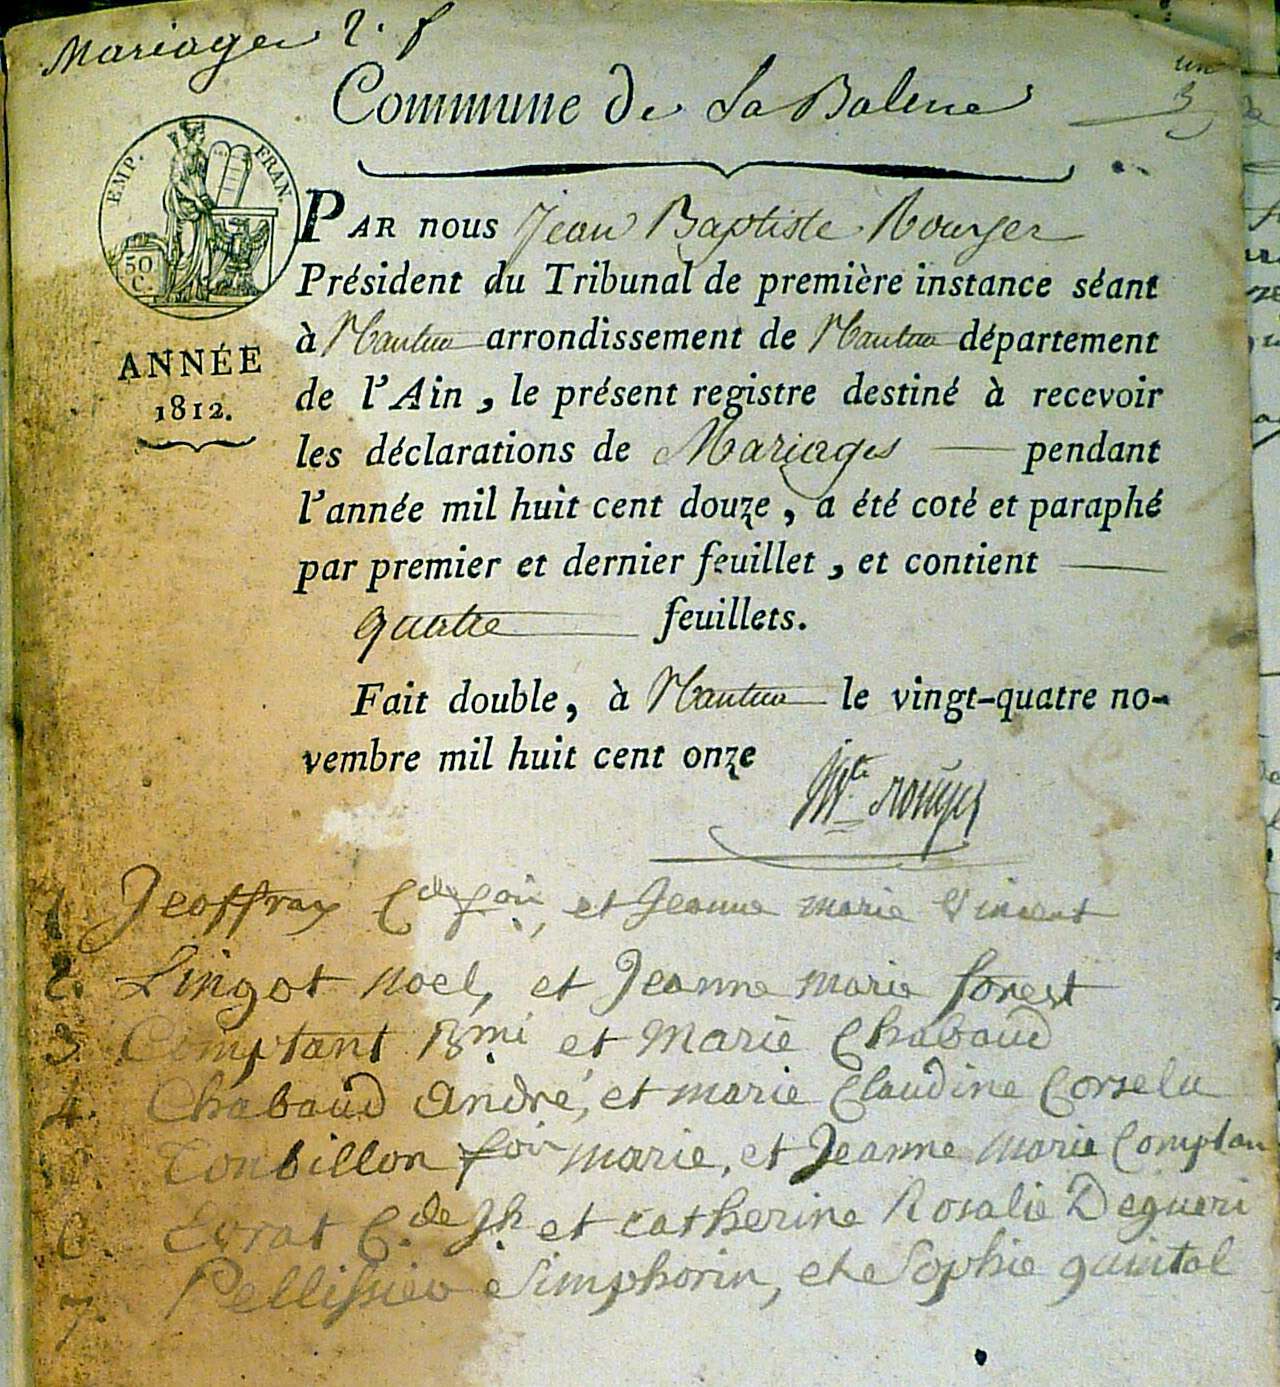 Mariages 2. f
un
Commune de La Balme
EMP. FRAN.
50
C.
ANNÉE
1812.
PAR nous Jean Baptiste Rouyer
Président du Tribunal de première instance séant
à Nantua arrondissement de Nantua département
de l'Ain, le présent registre destiné à recevoir
les déclarations de Mariages pendant
l'année mil huit cent douze, a été coté et paraphé
par premier et dernier feuillet, et contient
quatre feuillets.
Fait double, à Nantua le vingt-quatre no-
vembre mil huit cent onze
J. Bte. rouyer
1. Jeoffray Cde fois, et Jeanne marie Vincent
2. Lingot Noel, et Jeanne marie forest
3. Comptant Bmi et Marie Chabaud
4. Chabaud André, et marie Claudine Corselu
Toubillon fois marie, et Jeanne Marie Comptan
6. Evrat C.de Jh et catherine Rosalie Degueri
7. Pellissier Simphorin, et Sophie quintal